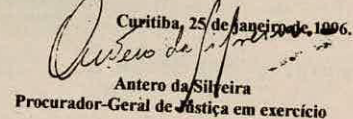 Curitiba, 25 de janeiro de 1996.
Antero da Silveira
Procurador-Geral de Justiça em exercício